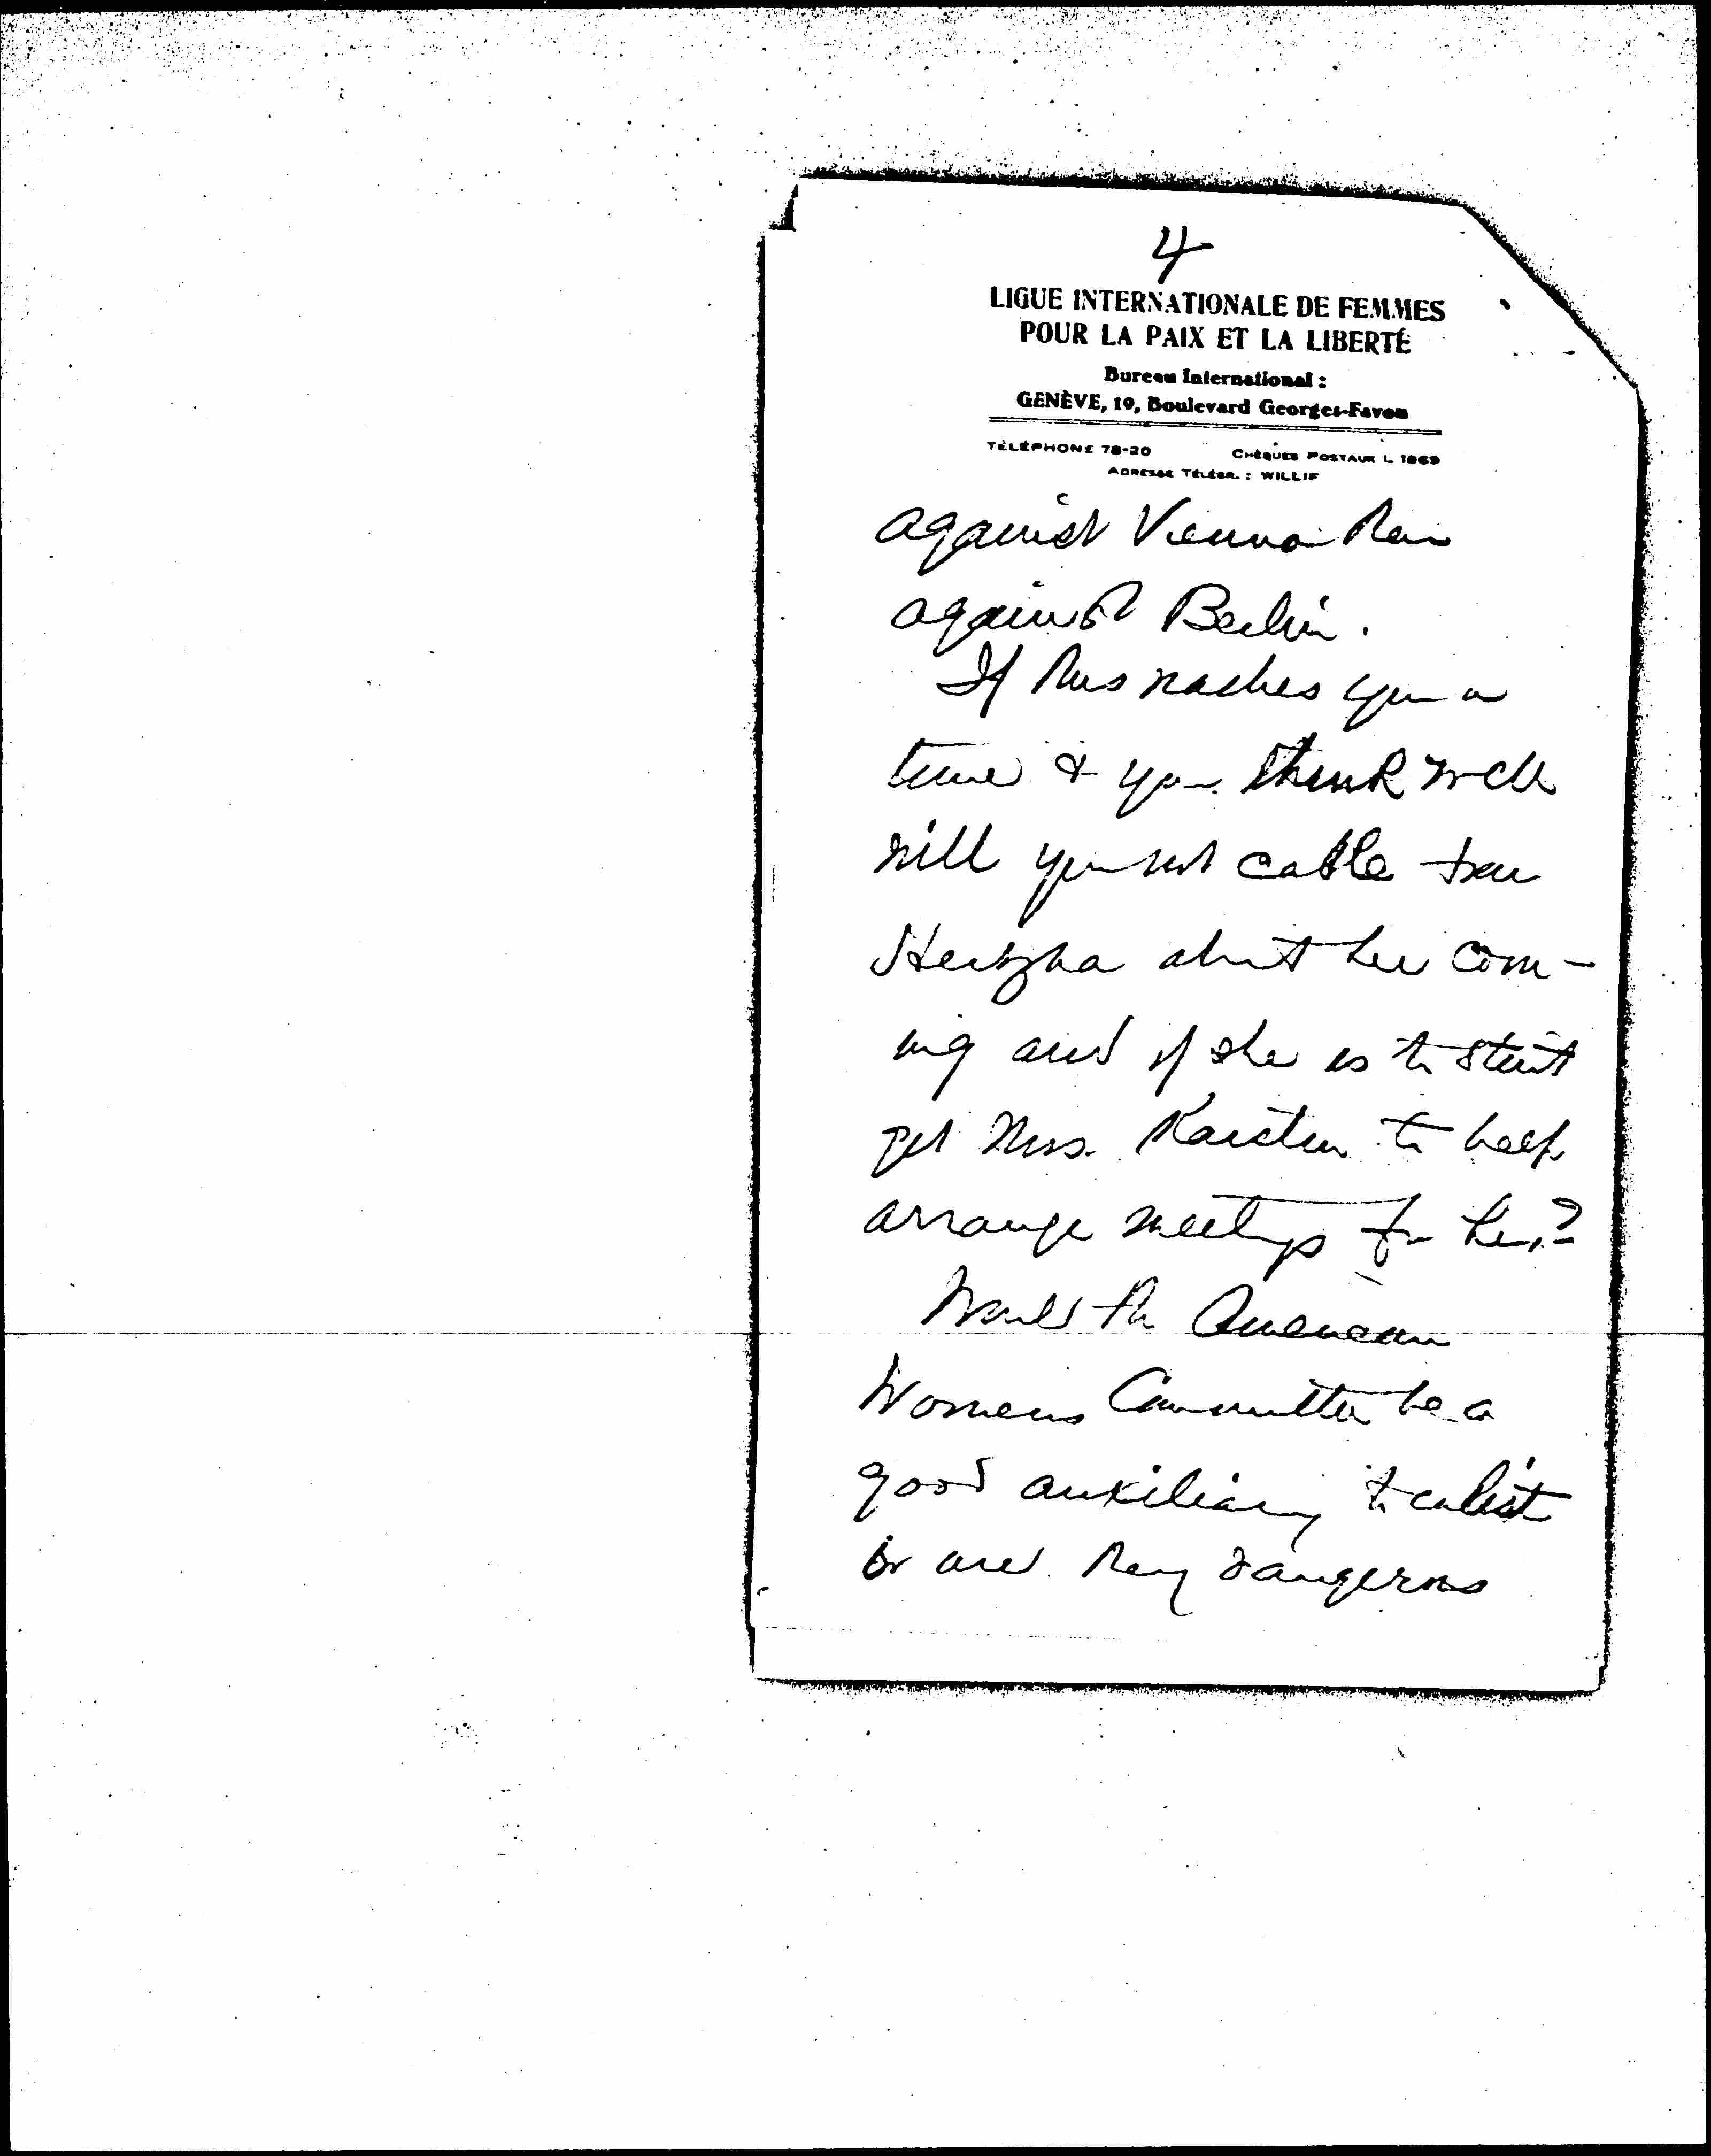 4
LIGUE INTERNATIONALE DE FEMMES
POUR LA PAIX ET LA LIBERTÉ
Bureau International :
GENÈVE, 19, Boulevard Georges-Favon
TÉLÉPHONE 78-20 CHÈQUES POSTAUX I. 1869
ADRESSE TÉLÉGR. : WILLIF
against Vienna than
against Berlin.
If this reaches you in
time & you think well
will you not cable Frau
Hertzka about her com-
ing and if she is to start
get Mrs. Karsten to help
arrange meetings for her?
Would the American
Womens Committee be a
good auxiliary to enlist
or are they dangerous